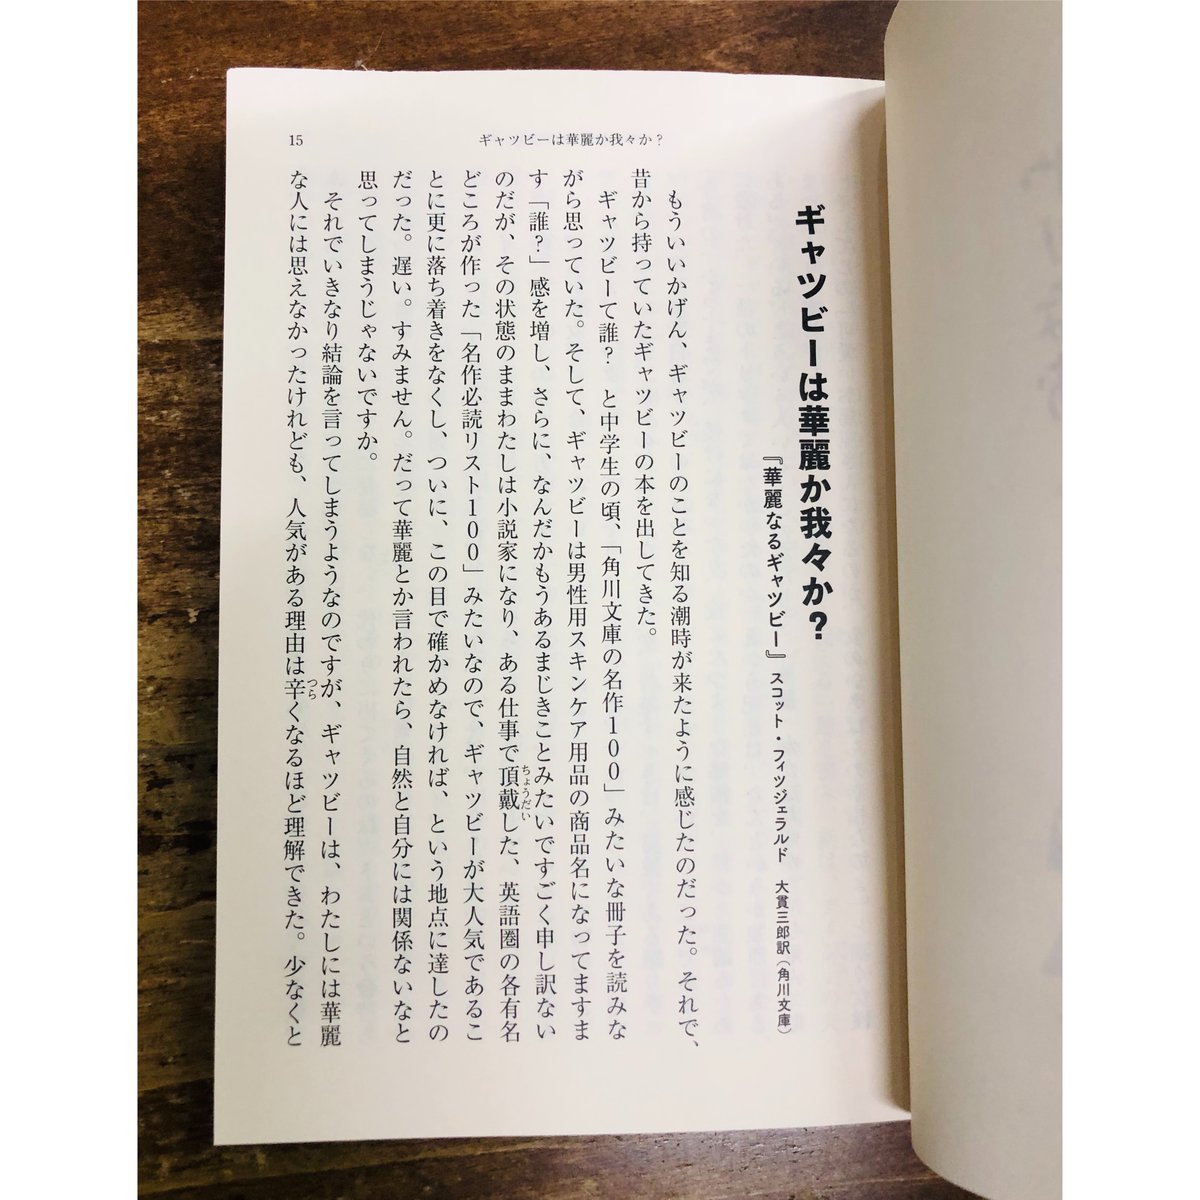 15
ギャツビーは華麗か我々か？
ギャツビーは華麗か我々か？
『華麗なるギャツビー』スコット・フィツジェラルド　大貫三郎訳（角川文庫）
もういいかげん、ギャツビーのことを知る潮時が来たように感じたのだった。それで、
昔から持っていたギャツビーの本を出してきた。
ギャツビーて誰？　と中学生の頃、「角川文庫の名作100」みたいな冊子を読みな
がら思っていた。そして、ギャツビーは男性用スキンケア用品の商品名になってますま
す「誰？」感を増し、さらに、なんだかもうあるまじきことみたいですごく申し訳ない
のだが、その状態のままわたしは小説家になり、ある仕事で頂戴した、英語圏の各有名
ちょうだい
どころが作った「名作必読リスト100」みたいなので、ギャツビーが大人気であるこ
とに更に落ち着きをなくし、ついに、この目で確かめなければ、という地点に達したの
だった。遅い。すみません。だって華麗とか言われたら、自然と自分には関係ないなと
思ってしまうじゃないですか。
それでいきなり結論を言ってしまうようなのですが、ギャツビーは、わたしには華麗
な人には思えなかったけれども、人気がある理由は辛くなるほど理解できた。少なくと
つら